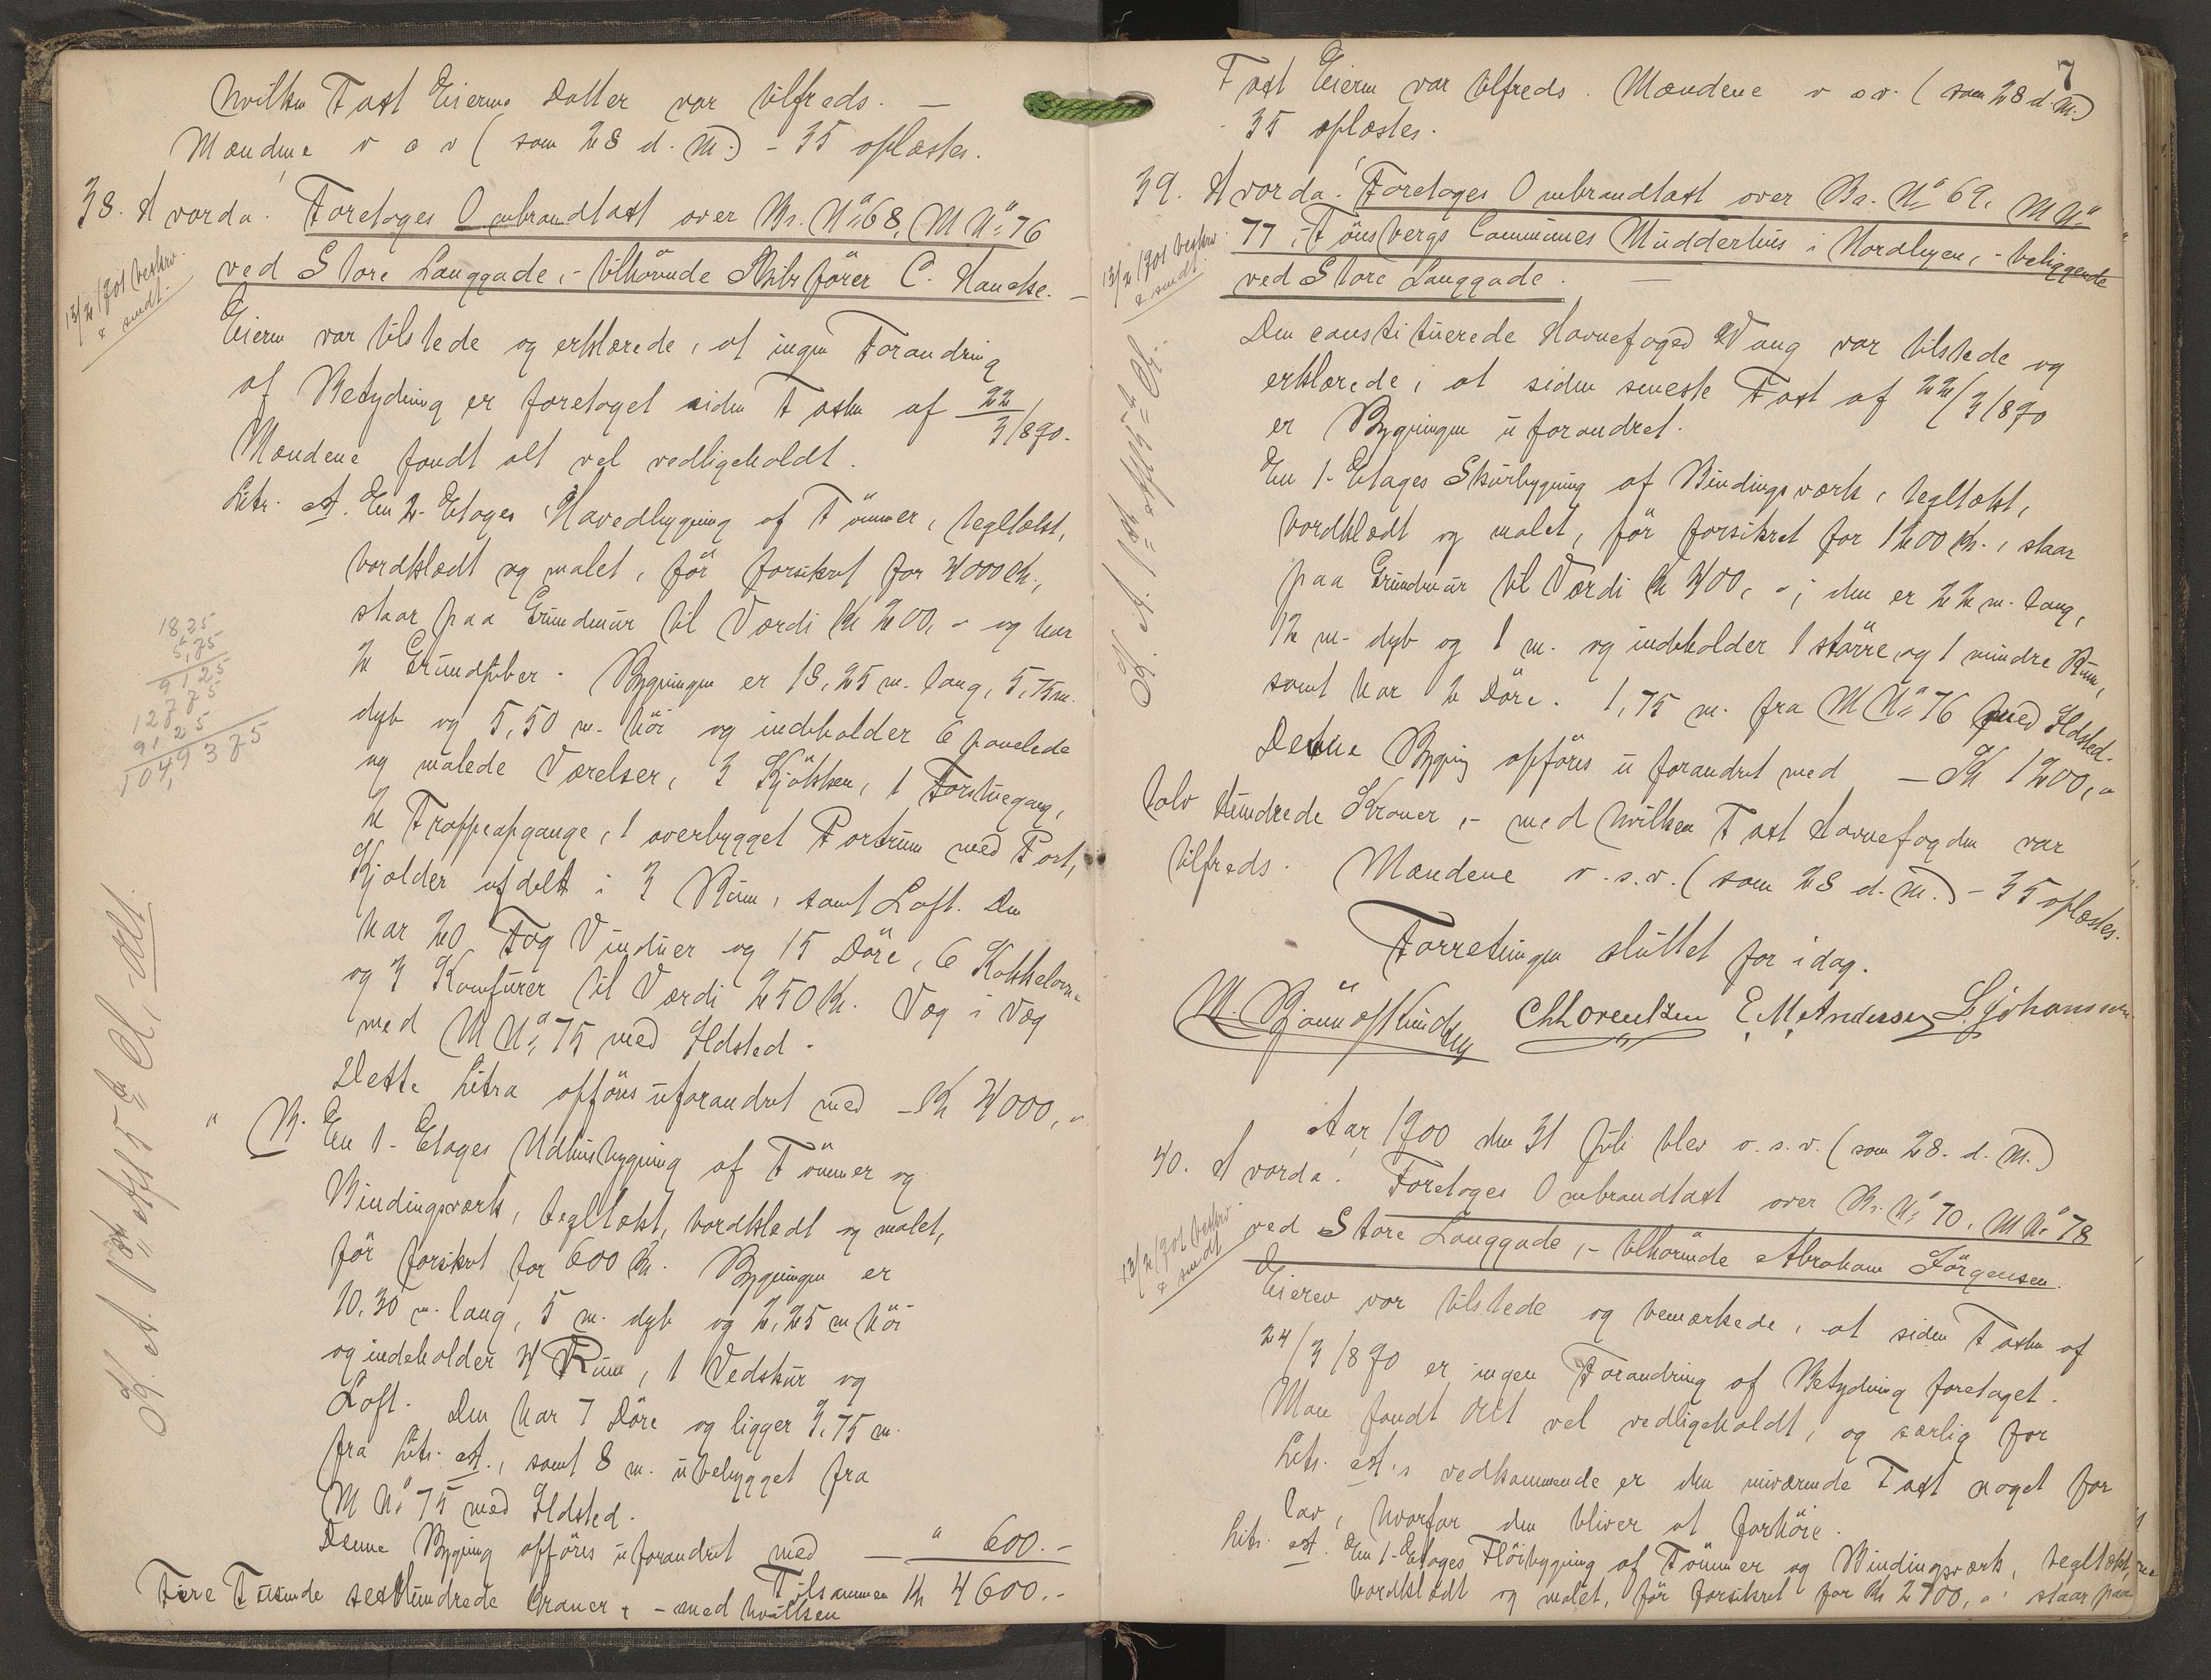 hvilken Taxt Eierens Datter var tilfreds. —
Mændene v o v ( som 28 d. M.) - 35 oplæstes.
38. Hvorda: Foretoges Ombrandtaxt over Br. No 68, M No 76
ved Store Langgade, - tilhörende Skibsförer C. Hancke. -
13/2/901 beskrv.
& sendt.
Eieren var tilstede og erklærede, at ingen Forandring
af Betydning er foretaget siden Taxten af 22/3/890.
Mændene fandt alt vel vedligeholdt.
Litr. A. En 2-Etages Hovedbygning af Tömmer, tegltækt,
bordklædt og malet, för forsikret for 4000 Kr.,
staar paa Grundmur til Værdi Kr 200, - og har
2 Grundpiber. Bygningen er 18,25 m. lang, 5,75 m.
dyb og 5,50 m. höi og indeholder 6 panelede
og malede Værelser, 3 Kjökken, 1 Forstuegang,
2 Trappeopgange, 1 overbygget Portrum med Port,
Kjælder afdelt i 3 Rum, samt Loft. Den
har 20 Fag Vinduer og 15 Döre, 6 Kakkelovne
og 3 Komfurer til Værdi 250 Kr. Væg i Væg
med M No 75 med Ildsted.
Dette Litra opföres uforandret med - Kr 4000, -
18,25
5,75
9125
12775
9125
104,9375
" B. En 1-Etages Udhusbygning af Tömmer og
Bindingsværk, tegltækt, bordklædt og malet,
för forsikret for 600 Kr. Bygningen er
10,30 m. lang, 5 m. dyb og 2,25 m höi
og indeholder 4 Rum, 1 Vedskur og
Loft. Den har 7 Döre og ligger 3,75 m.
fra Litr. A., samt 8 m. ubebygget fra
M No 75 med Ildsted.
Denne Bygning opföres uforandret med — " 600. -
Tilsammen Kr 4600. -
Fire Tusinde sexHundrede Kroner, - med hvilken
7
Taxt Eieren var tilfreds. Mændene v o v. ( som 28 d. M.)
- 35 oplæstes.
39. Hvorda: Foretoges Ombrandtaxt over Br. No 69, M No
77, Tönsbergs Communes Mudderhus i Nordbyen, - beliggende
ved Store Langgade. —
13/2/901 beskrv.
& sendt.
Den constituerede Havnefoged Wang var tilstede og
erklærede, at siden seneste Taxt af 22/3/890
er Bygningen uforandret.
En 1-Etages Skurbygning af Bindingsværk, tegltækt,
bordklædt og malet, för forsikret for 1200 Kr., staar
paa Grundmur til Værdi Kr 400, -; den er 22 m. lang,
12 m. dyb og 1 m. og indeholder 1 större og 1 mindre Rum,
samt har 2 Döre. 1,75 m. fra M No 76 med Ildsted.
Denne Bygning opföres uforandret med — Kr 1200, -
tolv Hundrede Kroner, - med hvilken Taxt Havnefogden var
tilfreds. Mændene v. o. v. ( som 28 d. M.) - 35 oplæstes.
Forretningen sluttet for idag.
Chr Lorentzen E. M. Andersen L. Johanssen
Aar 1900 den 31 Juli blev o. s. v. ( som 28. d. M.)
40. Hvorda: Foretoges Ombrandtaxt over Br. No 70, M No 78
ved Store Langgade, - tilhörende Abraham Jörgensen.
13/2/901 beskrv.
& sendt
Eieren var tilstede og bemærkede, at siden Taxten af
24/3/890 er ingen Forandring af Betydning foretaget.
Man fandt Alt vel vedligeholdt, og særlig for
Litr. A.s vedkommende er den nuværende Taxt noget for
lav, hvorfor den bliver at forhöie.
Litr. A. En 1-Etages Flöibygning af Tömmer og Bindingsværk, tegltækt,
bordklædt og malet, för forsikret for Kr 2700, - staar paa